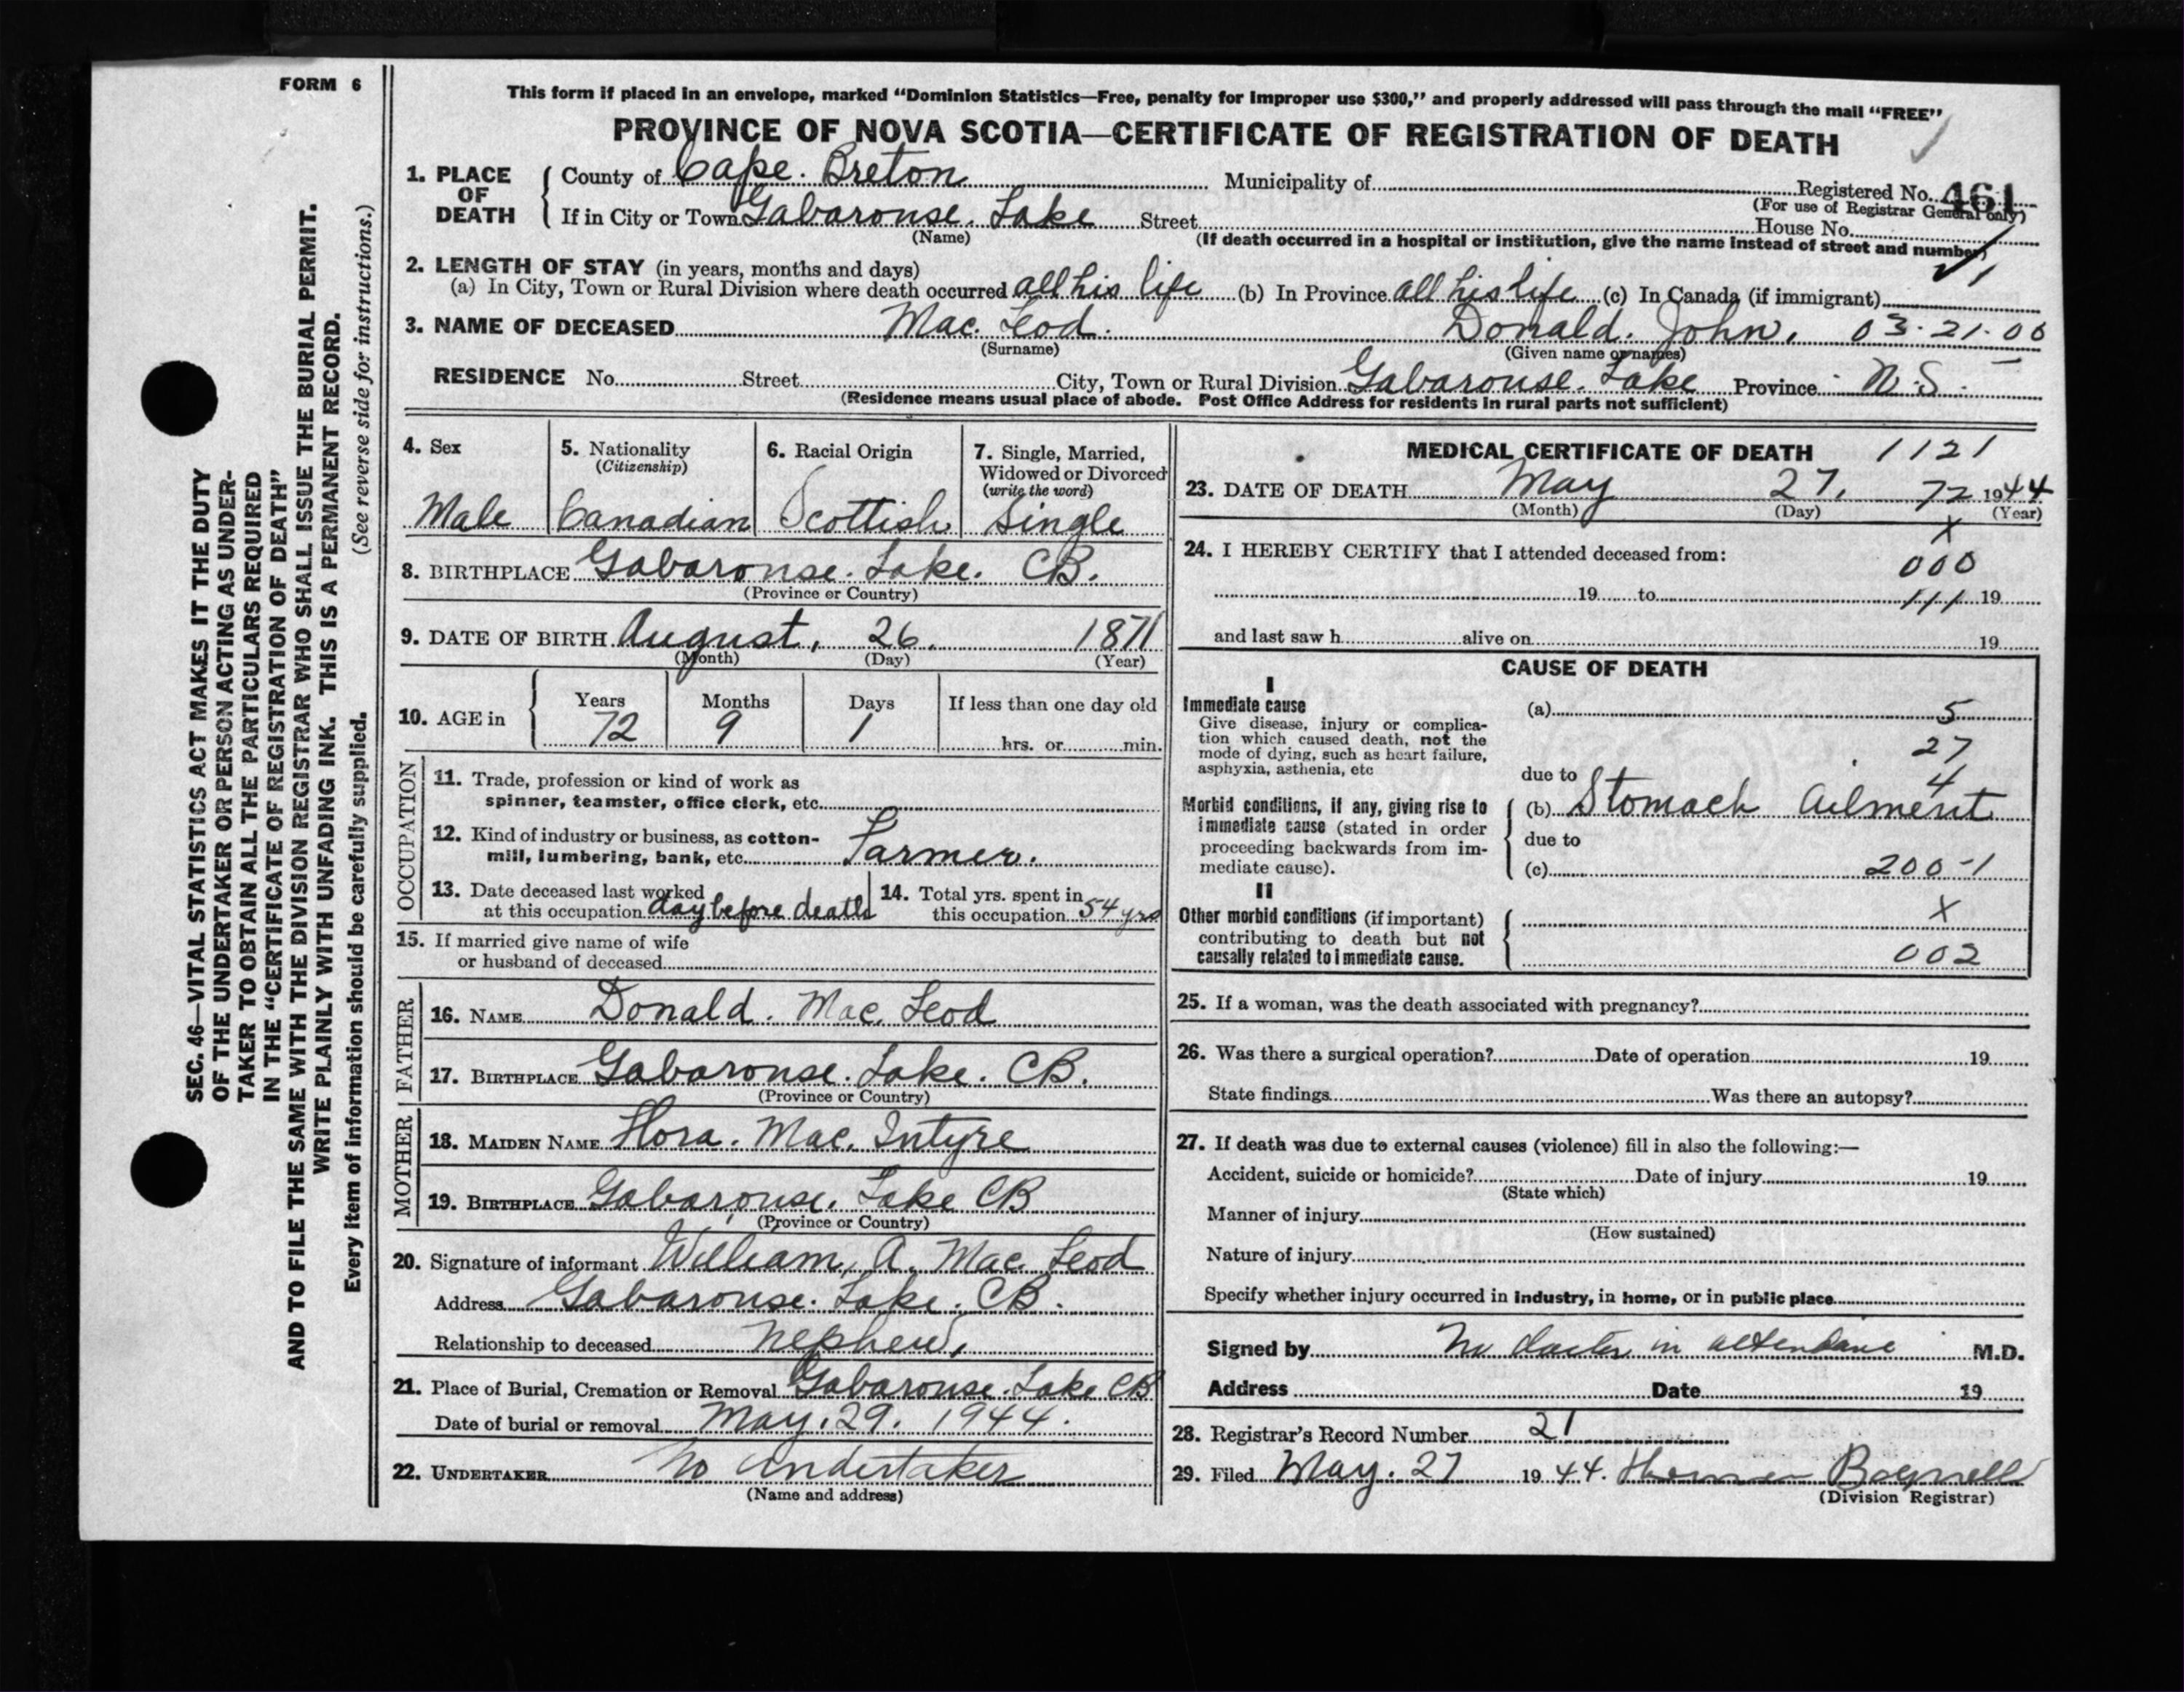 FORM 6
SEC. 46—VITAL STATISTICS ACT MAKES IT THE DUTY
OF THE UNDERTAKER OR PERSON ACTING AS UNDER-
TAKER TO OBTAIN ALL THE PARTICULARS REQUIRED
IN THE "CERTIFICATE OF REGISTRATION OF DEATH"
AND TO FILE THE SAME WITH THE DIVISION REGISTRAR WHO SHALL ISSUE THE BURIAL PERMIT.
WRITE PLAINLY WITH UNFADING INK. THIS IS A PERMANENT RECORD.
Every item of information should be carefully supplied. (See reverse side for instructions.)
This form if placed in an envelope, marked "Dominion Statistics—Free, penalty for improper use $300," and properly addressed will pass through the mail "FREE"
PROVINCE OF NOVA SCOTIA—CERTIFICATE OF REGISTRATION OF DEATH
1. PLACE OF DEATH County of Cape. Breton Municipality of Registered No. 461
(For use of Registrar General only)
If in City or Town Gabarouse. Lake Street House No.
(Name) (If death occurred in a hospital or institution, give the name instead of street and number)
2. LENGTH OF STAY (in years, months and days)
(a) In City, Town or Rural Division where death occurred all his life (b) In Province all his life (c) In Canada (if immigrant)
3. NAME OF DECEASED Mac. Leod. Donald. John. 03-21-00
(Surname) (Given name or names)
RESIDENCE No. Street City, Town or Rural Division Gabarouse. Lake Province N.S.
(Residence means usual place of abode. Post Office Address for residents in rural parts not sufficient)
4. Sex 5. Nationality (Citizenship) 6. Racial Origin 7. Single, Married, Widowed or Divorced (write the word)
Male Canadian Scottish Single
8. BIRTHPLACE Gabarouse. Lake. CB.
(Province or Country)
9. DATE OF BIRTH August, 26, 1871
(Month) (Day) (Year)
10. AGE in Years Months Days If less than one day old
72 9 1 hrs. or min.
OCCUPATION
11. Trade, profession or kind of work as
spinner, teamster, office clerk, etc.
12. Kind of industry or business, as cotton-
mill, lumbering, bank, etc. Farmer.
13. Date deceased last worked
at this occupation day before death
14. Total yrs. spent in
this occupation 54 yrs
15. If married give name of wife
or husband of deceased
FATHER
16. NAME Donald. Mac. Leod
17. BIRTHPLACE Gabarouse. Lake. CB.
(Province or Country)
MOTHER
18. MAIDEN NAME Flora. Mac. Intyre
19. BIRTHPLACE Gabarouse. Lake CB
(Province or Country)
20. Signature of informant William, A. Mac Leod
Address Gabarouse. Lake. CB.
Relationship to deceased nephew,
21. Place of Burial, Cremation or Removal Gabarouse. Lake CB
Date of burial or removal May. 29. 1944.
22. UNDERTAKER No Undertaker
(Name and address)
MEDICAL CERTIFICATE OF DEATH 1121
23. DATE OF DEATH May 27, 72 1944
(Month) (Day) (Year)
X
24. I HEREBY CERTIFY that I attended deceased from:
000
19 to 111 19
and last saw h alive on 19
CAUSE OF DEATH
I
Immediate cause
Give disease, injury or complica-
tion which caused death, not the
mode of dying, such as heart failure,
asphyxia, asthenia, etc
(a) 5
27
due to 4
Morbid conditions, if any, giving rise to
immediate cause (stated in order
proceeding backwards from im-
mediate cause).
(b) Stomach Ailment
due to
(c) 200-1
II
Other morbid conditions (if important)
contributing to death but not
causally related to immediate cause.
X
002
25. If a woman, was the death associated with pregnancy?
26. Was there a surgical operation? Date of operation 19
State findings Was there an autopsy?
27. If death was due to external causes (violence) fill in also the following:—
Accident, suicide or homicide? Date of injury 19
(State which)
Manner of injury
(How sustained)
Nature of injury
Specify whether injury occurred in industry, in home, or in public place
Signed by No doctor in attendance M.D.
Address Date 19
28. Registrar's Record Number 21
29. Filed May. 27 1944. Bagnell
(Division Registrar)